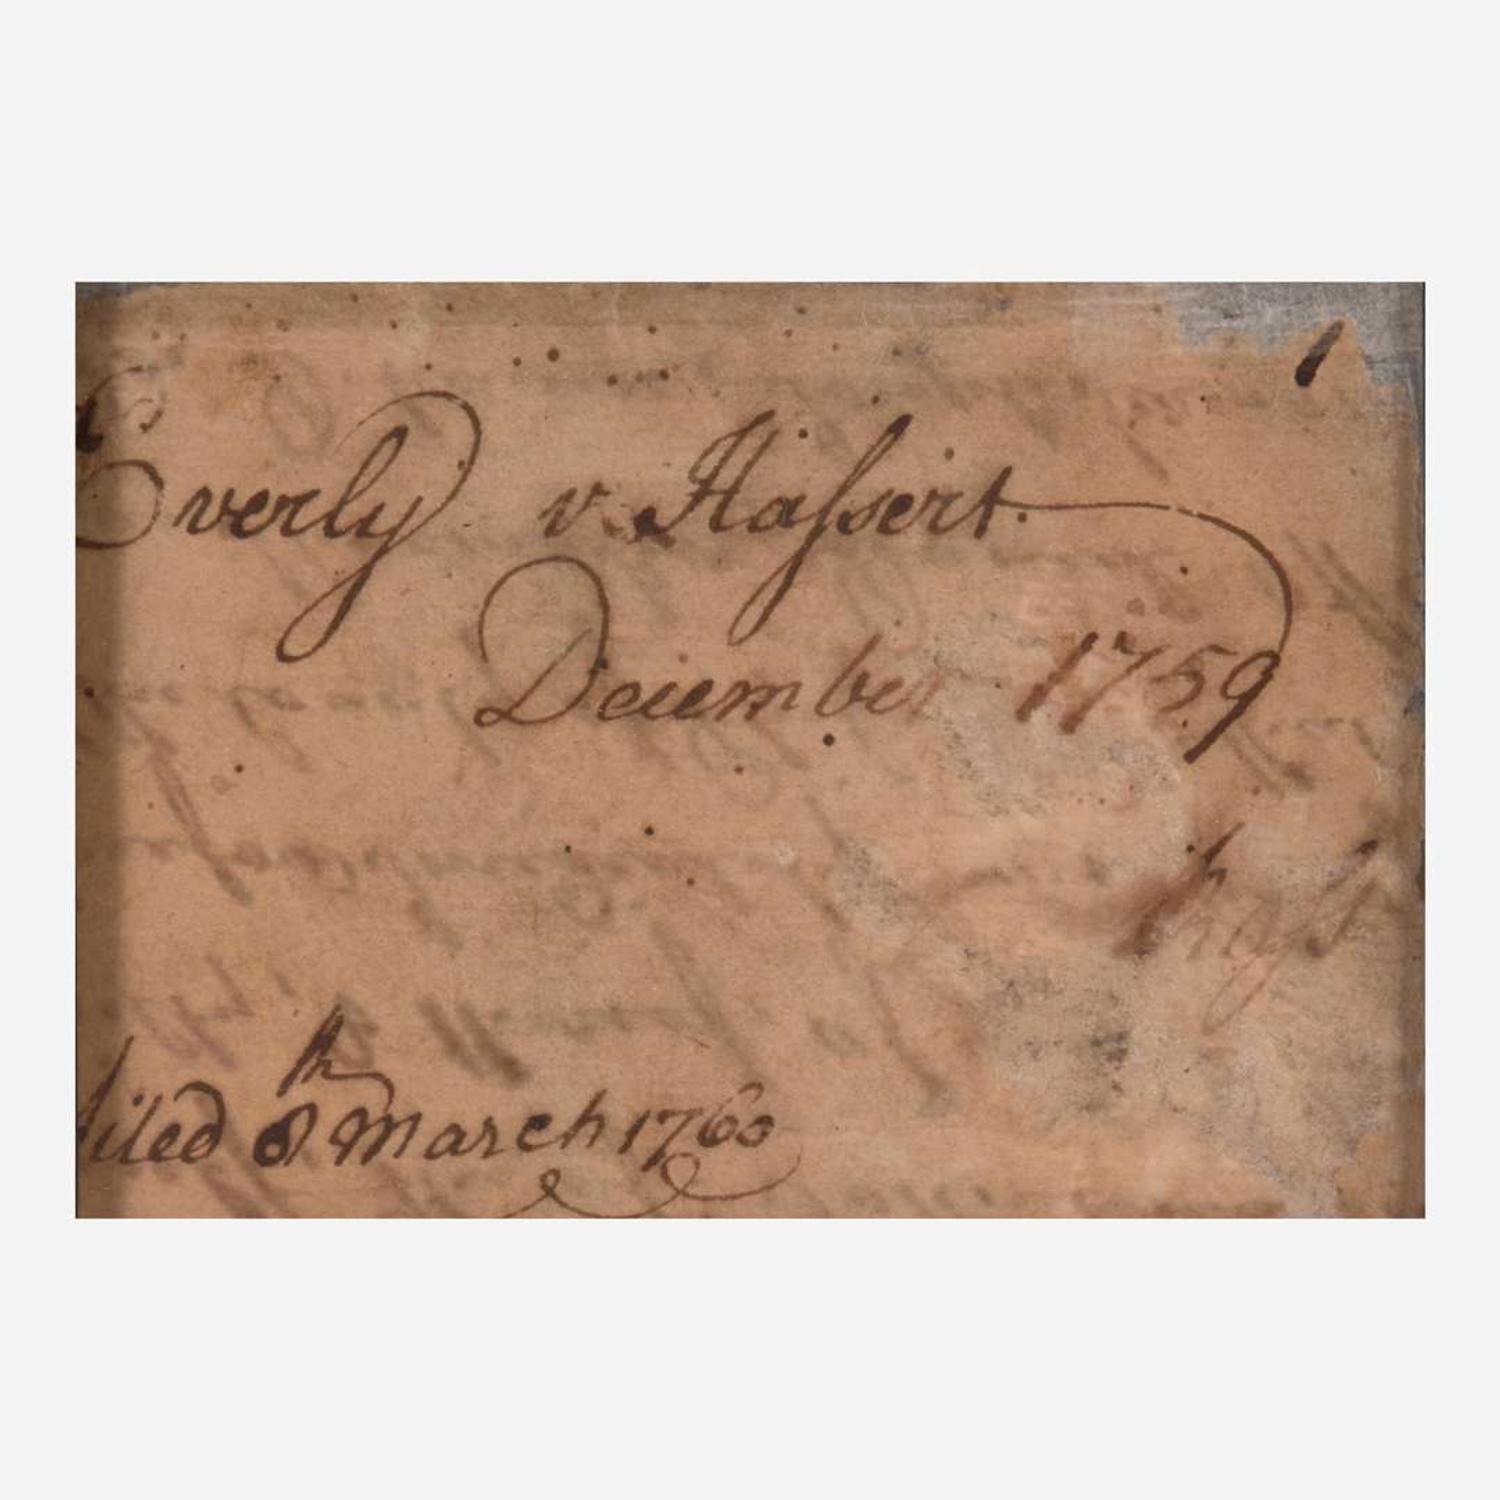 Everly v. Haſsert.
December 1759
filed 8th March 1760